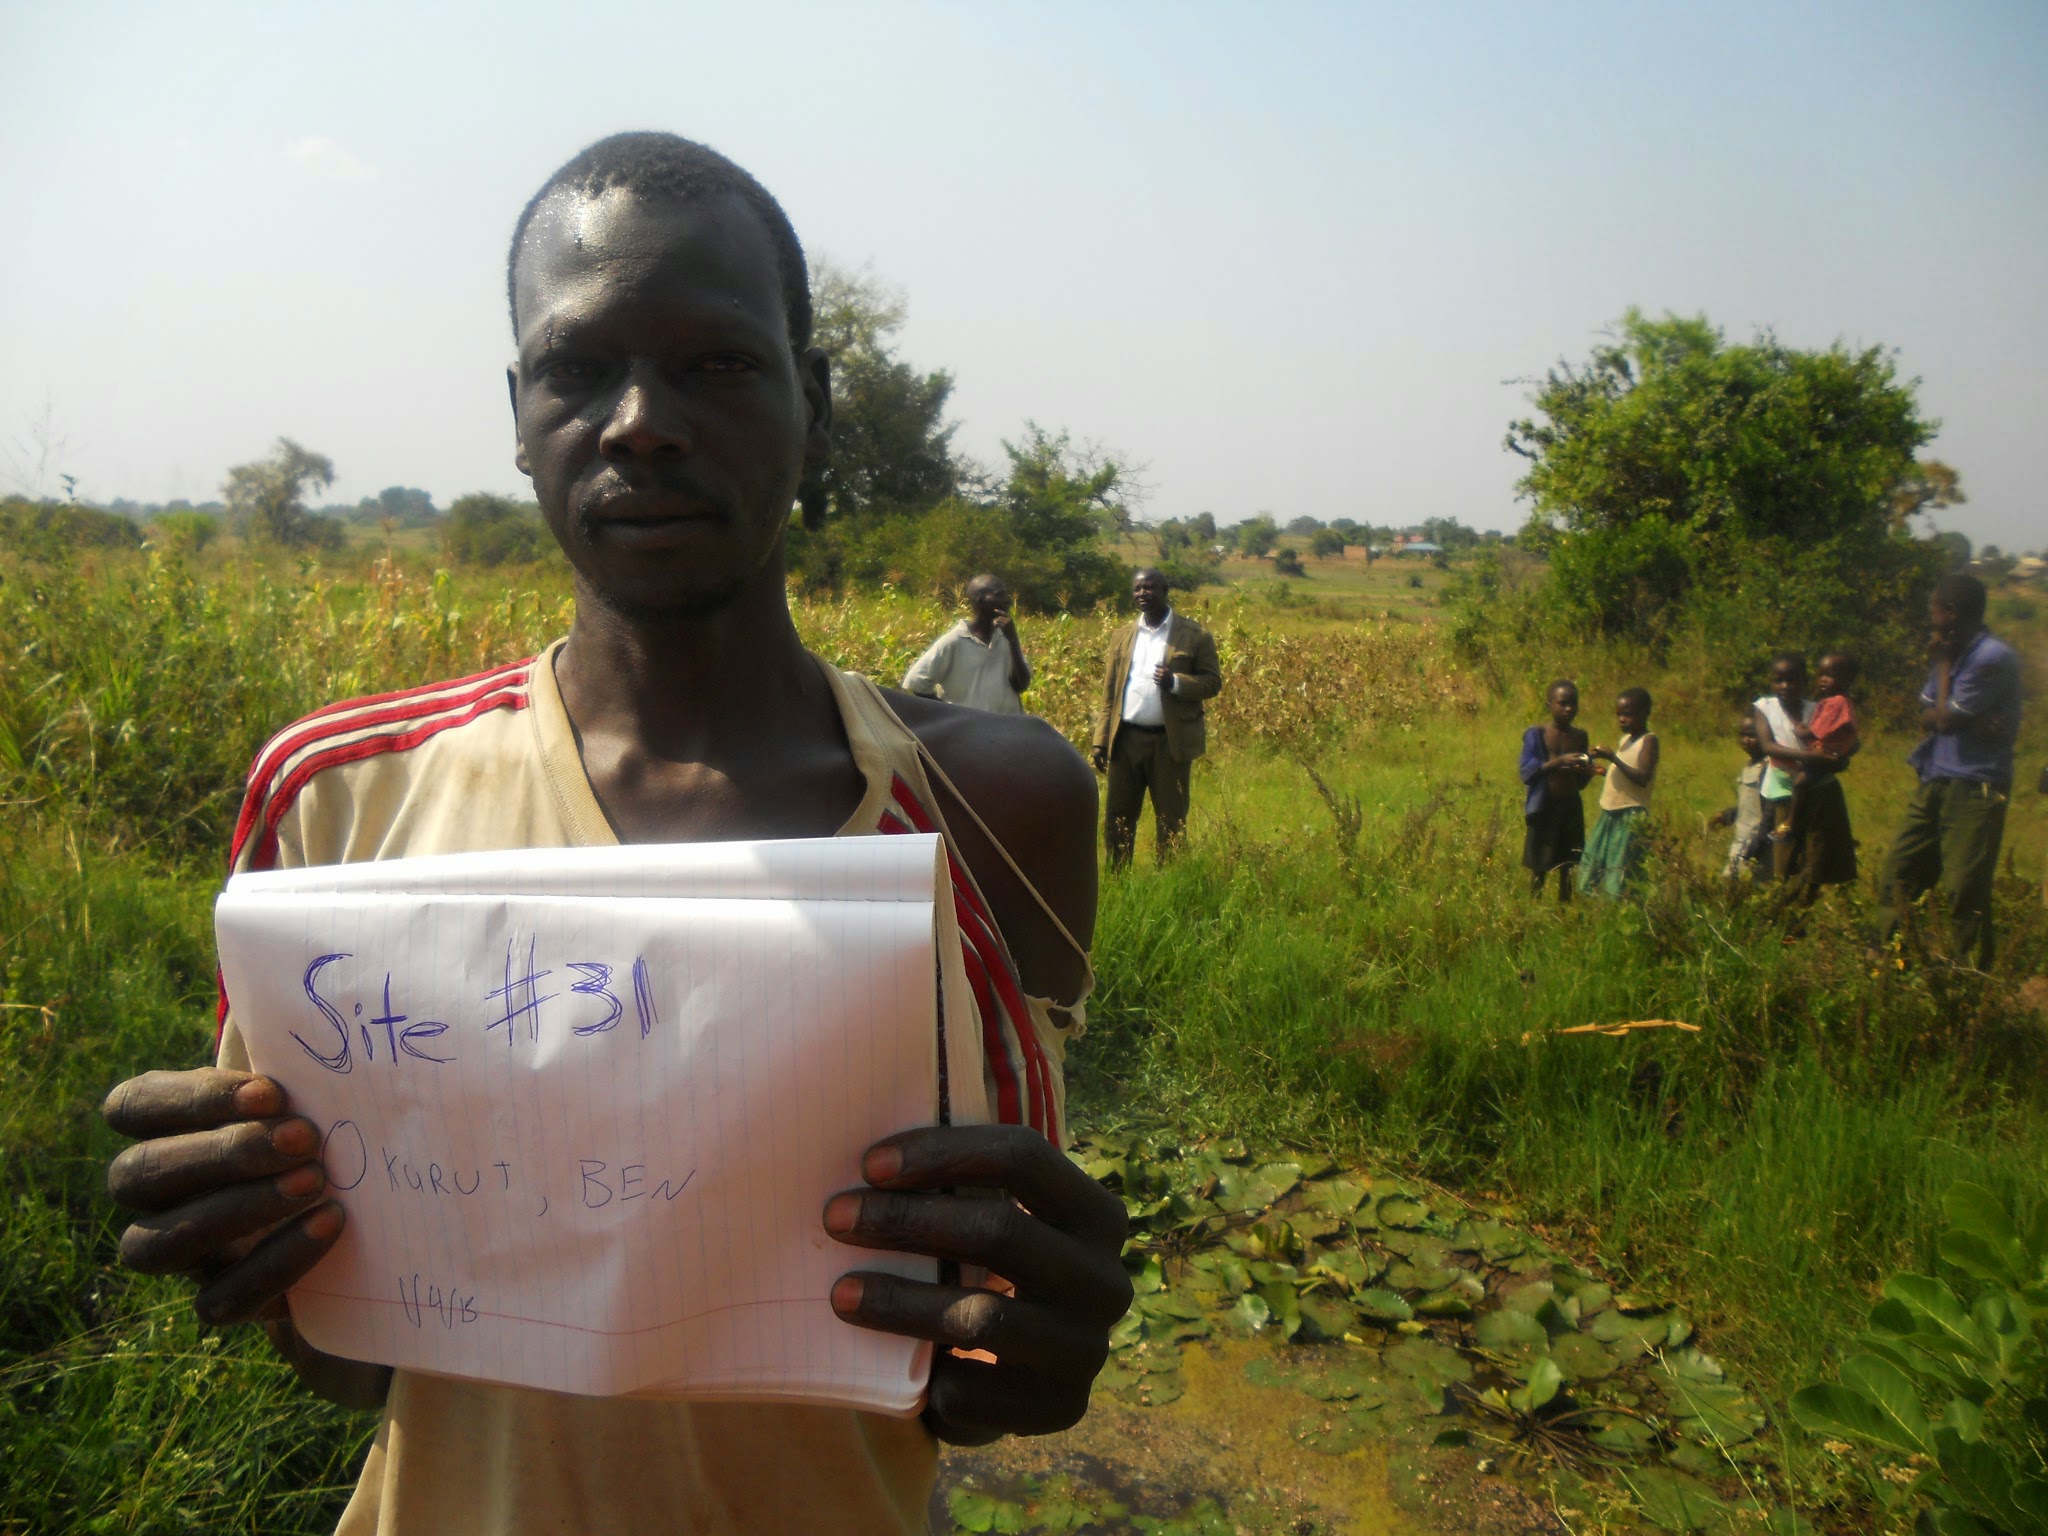 Site #31
OKURUT, BEN
1/4/15